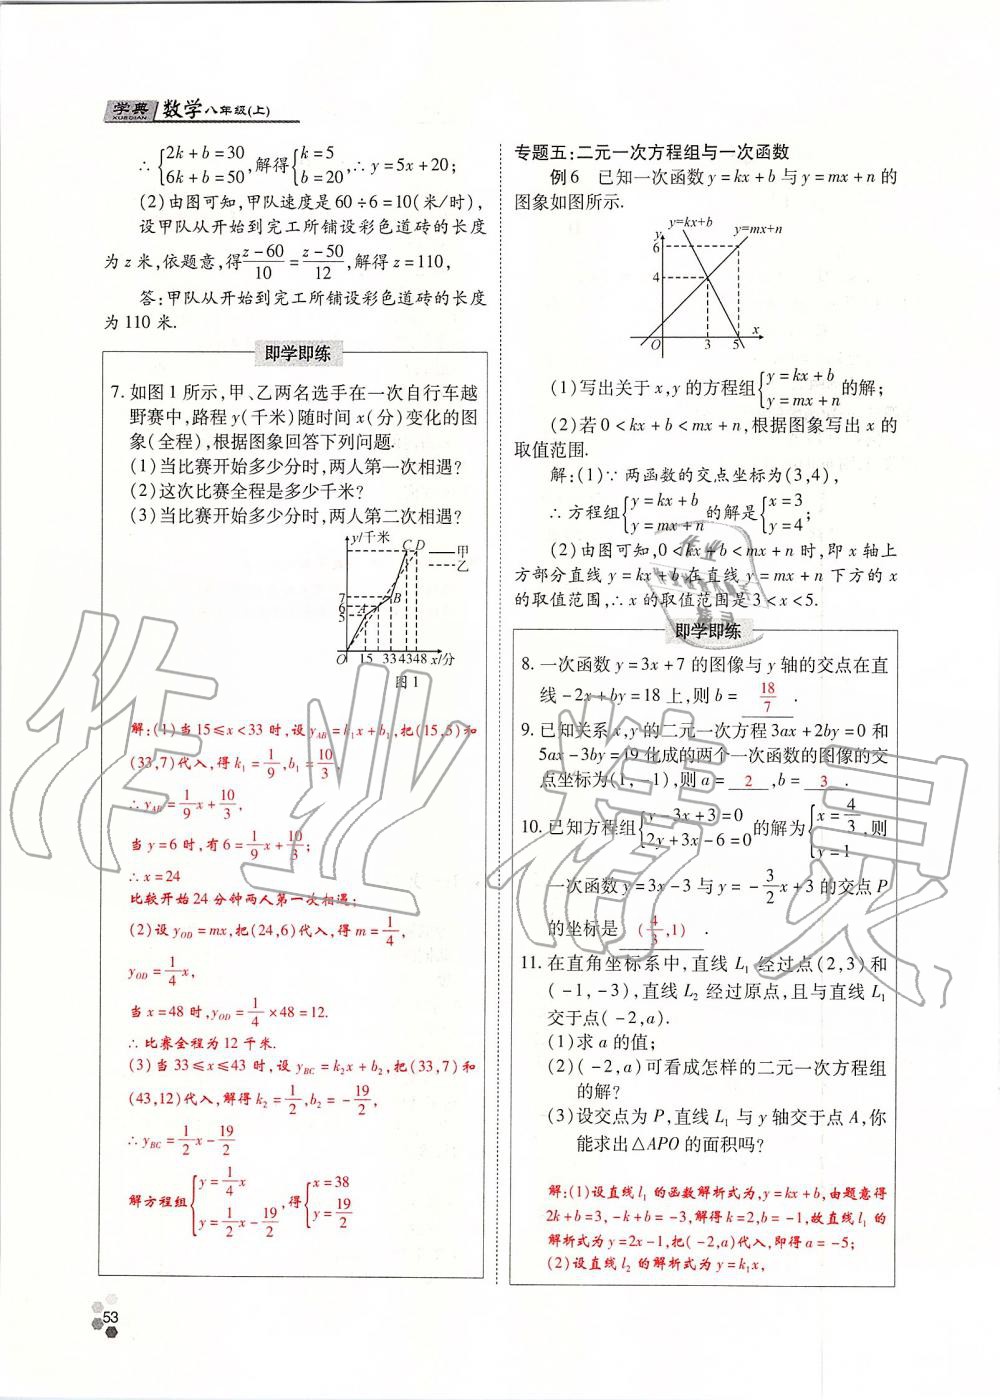 学典 数学八年级(上)
XUEDIAN
∴ {2k+b=30 6k+b=50 ,解得 {k=5 b=20 ,∴ y=5x+20;
(2)由图可知,甲队速度是60÷6=10(米/时),
设甲队从开始到完工所铺设彩色道砖的长度
为z米,依题意,得(z-60)/10=(z-50)/12,解得z=110,
答:甲队从开始到完工所铺设彩色道砖的长度
为110米.
即学即练
7. 如图1所示,甲、乙两名选手在一次自行车越
野赛中,路程y(千米)随时间x(分)变化的图
象(全程),根据图象回答下列问题.
(1)当比赛开始多少分时,两人第一次相遇?
(2)这次比赛全程是多少千米?
(3)当比赛开始多少分时,两人第二次相遇?
y/千米
C D
甲
乙
7
6
5
A
B
O 15 33 43 48 x/分
图1
解:(1)当15≤x<33时,设y_AB=k₁x+b₁,把(15,5)和
(33,7)代入,得k₁=1/9,b₁=10/3,
∴ y_AB=1/9x+10/3,
当y=6时,有6=1/9x+10/3;
∴ x=24
比较开始24分钟两人第一次相遇;
(2)设y_OD=mx,把(24,6)代入,得m=1/4,
y_OD=1/4x,
当x=48时,y_OD=1/4×48=12.
∴ 比赛全程为12千米.
(3)当33≤x≤43时,设y_BC=k₂x+b₂,把(33,7)和
(43,12)代入,解得k₂=1/2,b₂=-19/2,
∴ y_BC=1/2x-19/2
解方程组 {y=1/4x y=1/2x-19/2 ,得 {x=38 y=19/2
53
专题五:二元一次方程组与一次函数
例6 已知一次函数y=kx+b与y=mx+n的
图象如图所示.
y=kx+b
y=mx+n
y
6
4
O 3 5 x
(1)写出关于x,y的方程组 {y=kx+b y=mx+n 的解;
(2)若0<kx+b<mx+n,根据图象写出x的
取值范围.
解:(1)∵ 两函数的交点坐标为(3,4),
∴ 方程组 {y=kx+b y=mx+n 的解是 {x=3 y=4;
(2)由图可知,0<kx+b<mx+n时,即x轴上
方部分直线y=kx+b在直线y=mx+n下方的x
的取值范围,∴ x的取值范围是3<x<5.
即学即练
8. 一次函数y=3x+7的图像与y轴的交点在直
线-2x+by=18上,则b= 18/7 .
9. 已知关系x,y的二元一次方程3ax+2by=0和
5ax-3by=19化成的两个一次函数的图像的交
点坐标为(1,-1),则a= 2 ,b= 3 .
10. 已知方程组 {y-3x+3=0 2y+3x-6=0 的解为 {x=4/3 y=1 ,则
一次函数y=3x-3与y=-3/2x+3的交点P
的坐标是 (4/3,1) .
11. 在直角坐标系中,直线L₁经过点(2,3)和
(-1,-3),直线L₂经过原点,且与直线L₁
交于点(-2,a).
(1)求a的值;
(2)(-2,a)可看成怎样的二元一次方程组
的解?
(3)设交点为P,直线L₁与y轴交于点A,你
能求出△APO的面积吗?
解:(1)设直线l₁的函数解析式为,y=kx+b,由题意得
2k+b=3,-k+b=-3,解得k=2,b=-1,故直线l₁的
解析式为y=2x-1,把(-2,a)代入,即得a=-5;
(2)设直线l₂的解析式为y=k₁x,
作业精灵